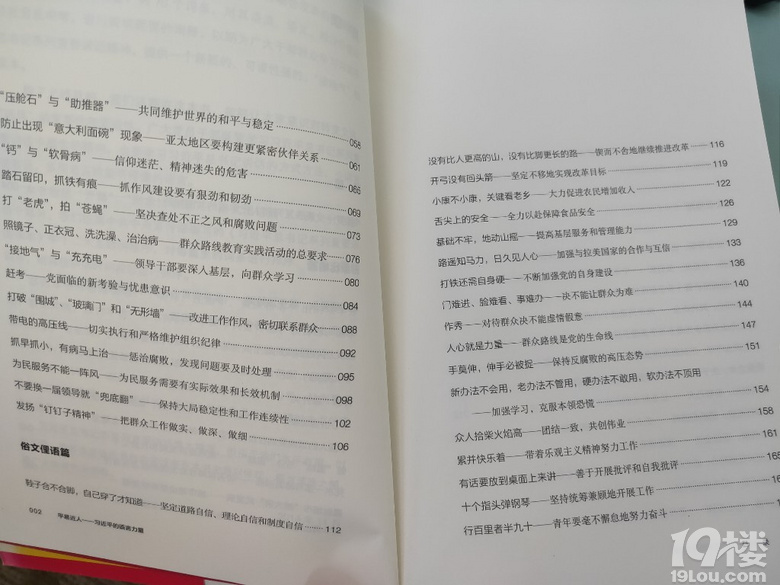 “压舱石”与“助推器”——共同维护世界的和平与稳定 058
防止出现“意大利面碗”现象——亚太地区要构建更紧密伙伴关系 061
“钙”与“软骨病”——信仰迷茫、精神迷失的危害 066
踏石留印，抓铁有痕——抓作风建设要有狠劲和韧劲 069
打“老虎”，拍“苍蝇”——坚决查处不正之风和腐败问题 073
照镜子、正衣冠、洗洗澡、治治病——群众路线教育实践活动的总要求 076
“接地气”与“充充电”——领导干部要深入基层，向群众学习 080
赶考——党面临的新考验与忧患意识 084
打破“围城”、“玻璃门”和“无形墙”——改进工作作风，密切联系群众 088
带电的高压线——切实执行和严格维护组织纪律 092
抓早抓小，有病马上治——惩治腐败，发现问题要及时处理 095
为民服务不能一阵风——为民服务需要有实际效果和长效机制 098
不要换一届领导就“兜底翻”——保持大局稳定性和工作连续性 102
发扬“钉钉子精神”——把群众工作做实、做深、做细 106
俗文俚语篇
鞋子合不合脚，自己穿了才知道——坚定道路自信、理论自信和制度自信 112
002 平易近人——习近平的语言力量
没有比人更高的山，没有比脚更长的路——锲而不舍地继续推进改革 116
开弓没有回头箭——坚定不移地实现改革目标 119
小康不小康，关键看老乡——大力促进农民增加收入 122
舌尖上的安全——全力以赴保障食品安全 126
基础不牢，地动山摇——提高基层服务和管理能力 129
路遥知马力，日久见人心——加强与拉美国家的合作与互信 133
打铁还需自身硬——不断加强党的自身建设 136
门难进、脸难看、事难办——决不能让群众为难 140
作秀——对待群众决不能虚情假意 144
人心就是力量——群众路线是党的生命线 147
手莫伸，伸手必被捉——保持反腐败的高压态势 150
新办法不会用，老办法不管用，硬办法不敢用，软办法不顶用
——加强学习，克服本领恐慌 154
众人拾柴火焰高——团结一致，共创伟业 158
累并快乐着——带着乐观主义精神努力工作 161
有话要放到桌面上来讲——善于开展批评和自我批评 165
十个指头弹钢琴——坚持统筹兼顾地开展工作
行百里者半九十——青年要毫不懈怠地努力奋斗
19楼
19lou.com